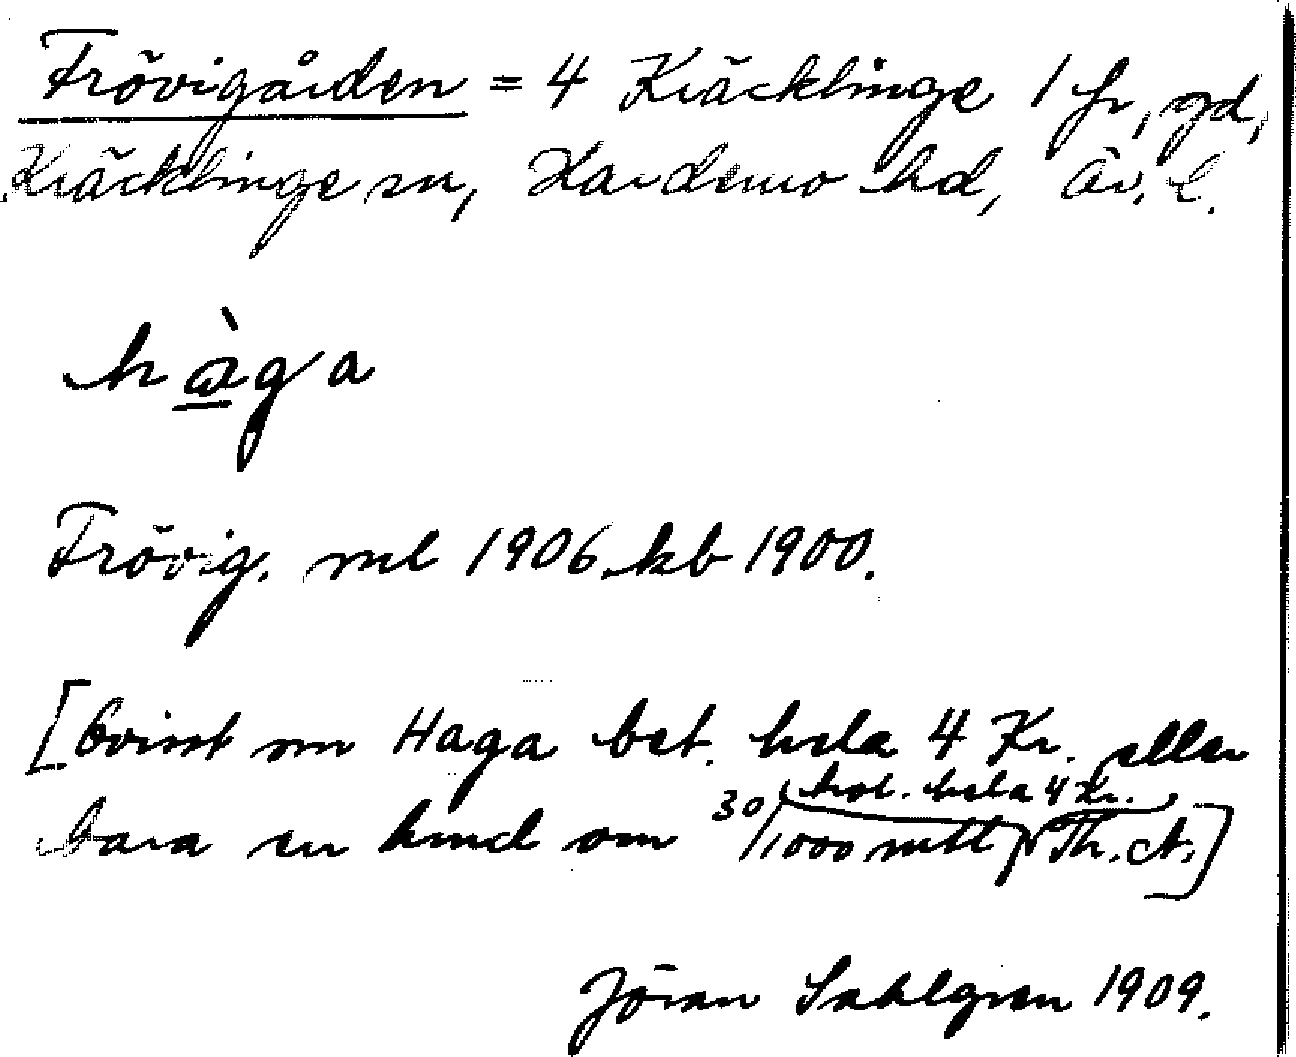 Frövigården = 4 Kräcklinge 1 fr, gd,
Kräcklinge sn, Hardemo hd, Ör. l.
hàga
Frövig. ml 1906. kb 1900.
[Ovisst om Haga bet. hela 4 Kr. eller
trol. hela 4 Kr.
bara en hmd om 30/1000 mtl Th. ct.]
Jöran Sahlgren 1909.